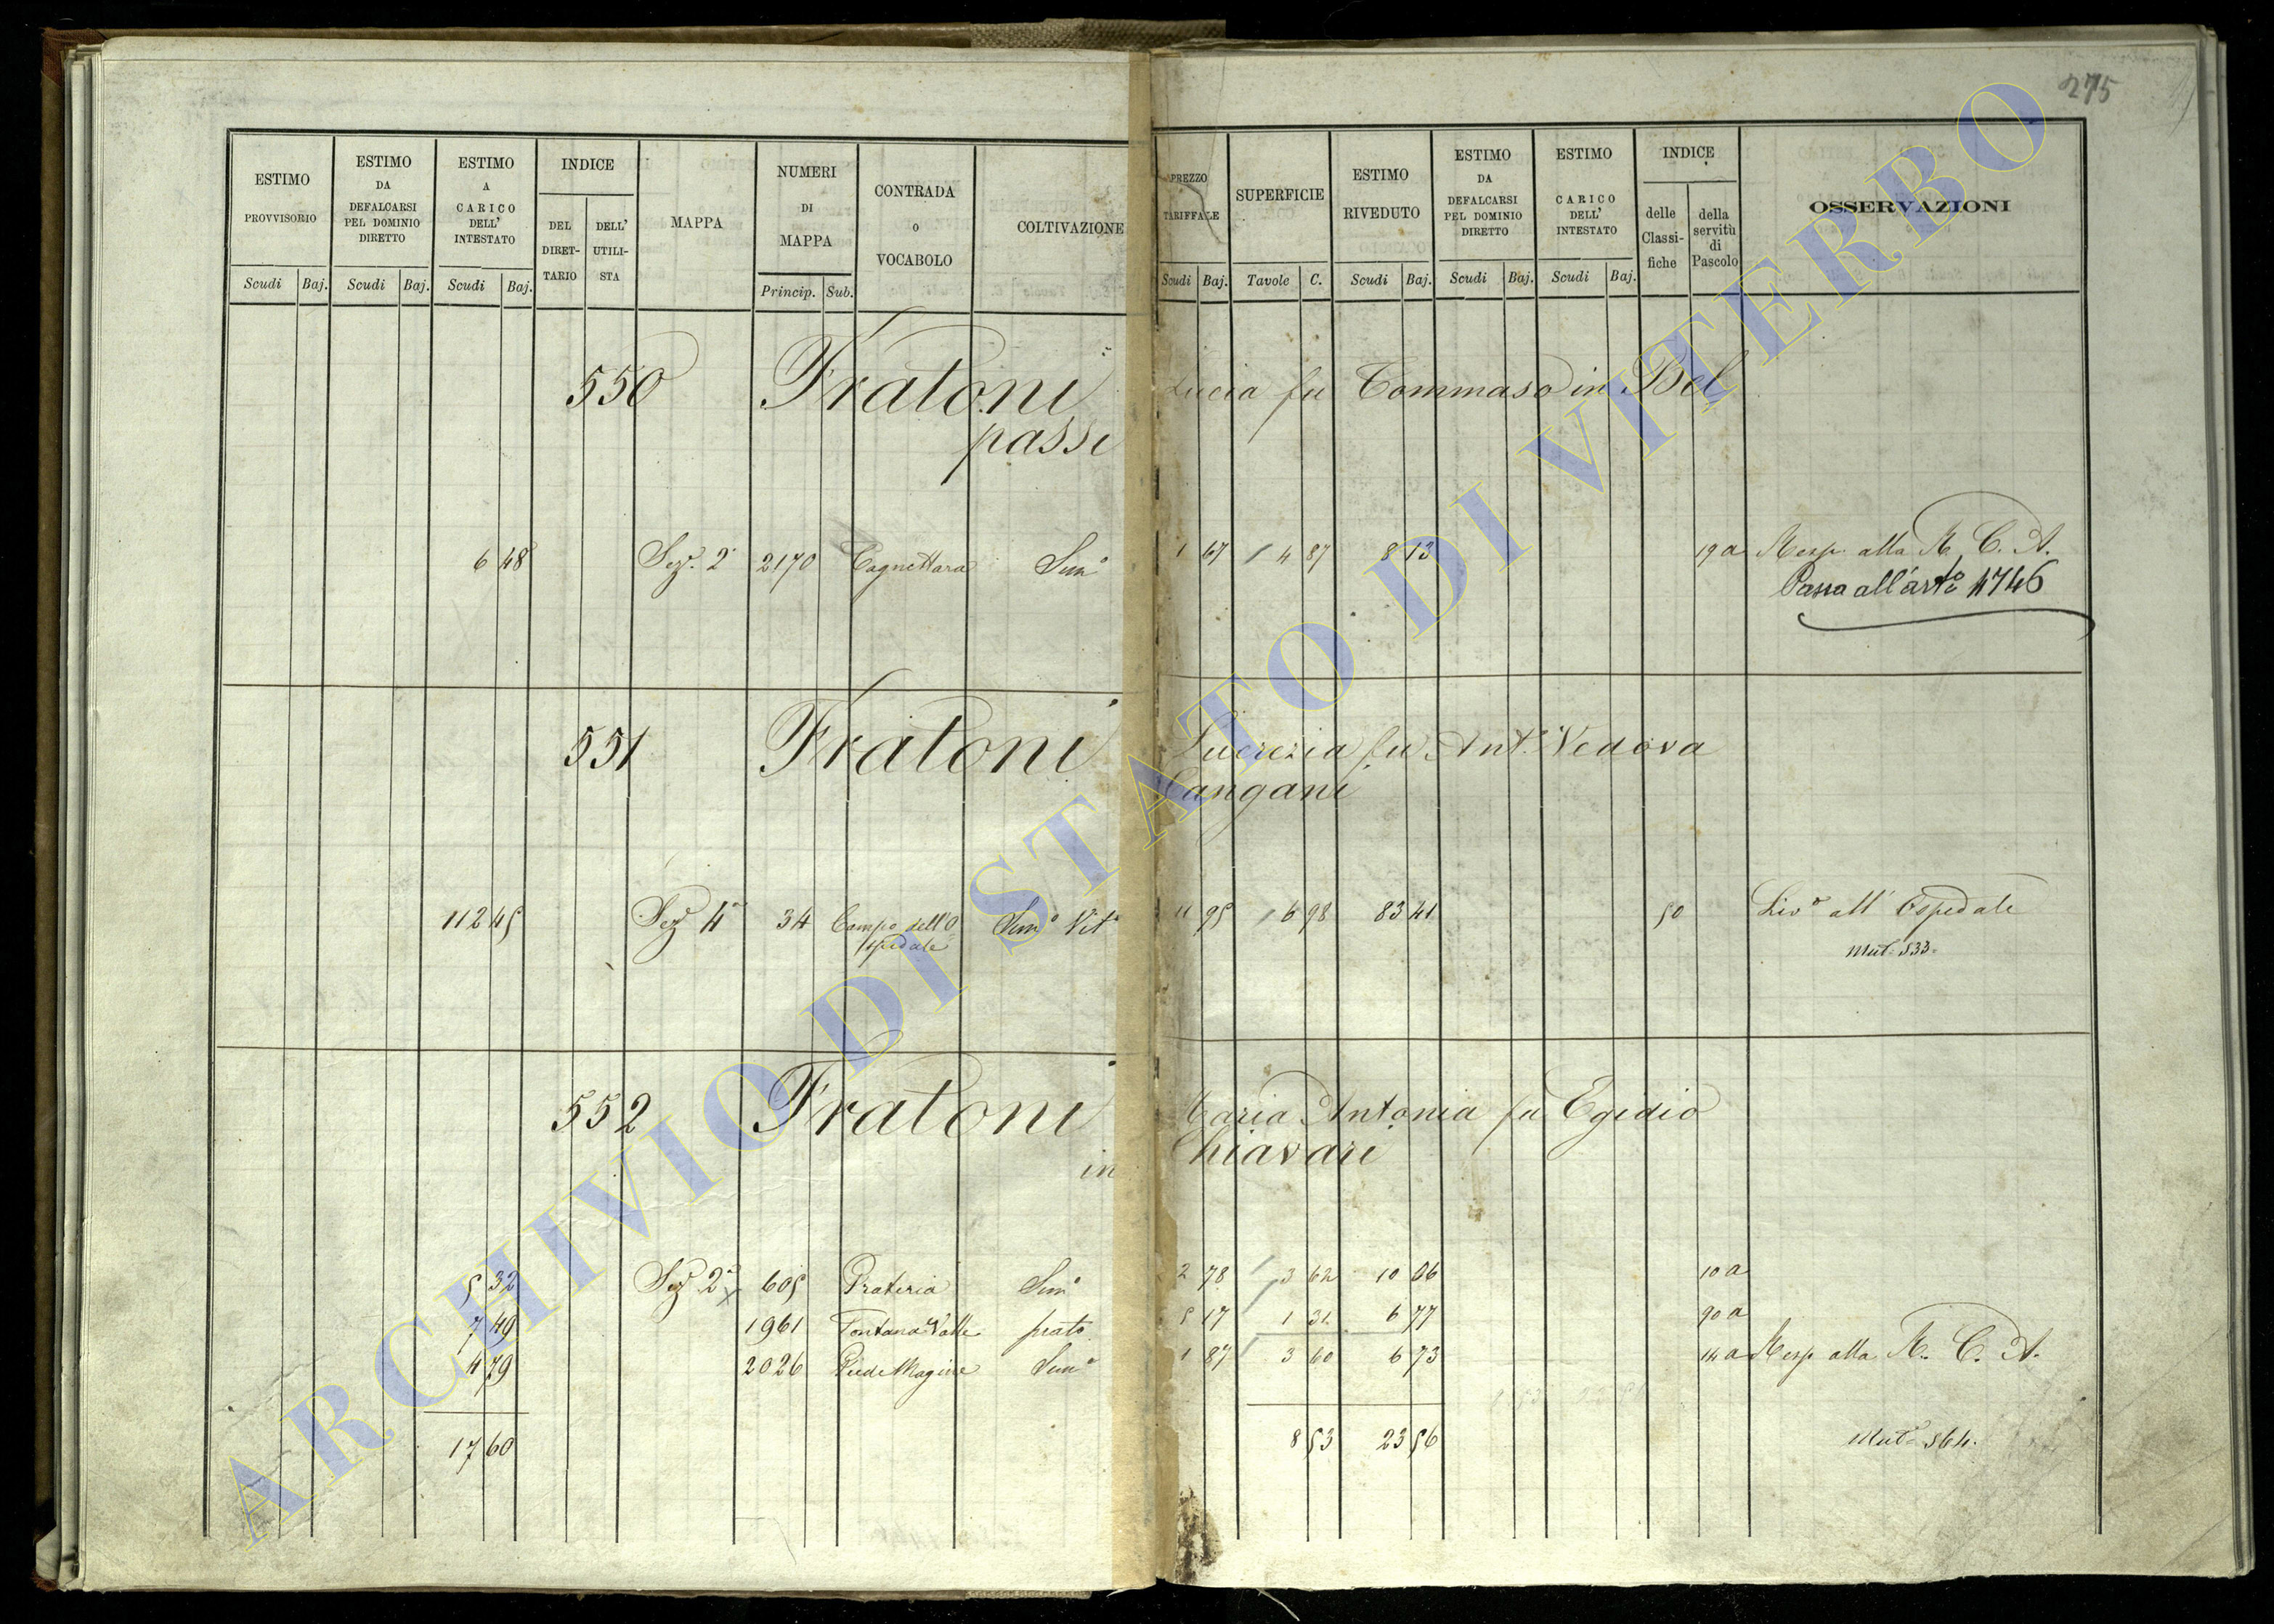 275
ESTIMO PROVVISORIO
ESTIMO DA DEFALCARSI PEL DOMINIO DIRETTO
ESTIMO A CARICO DELL' INTESTATO
INDICE
DEL DIRET-TARIO
DELL' UTILI-STA
MAPPA
NUMERI DI MAPPA
CONTRADA o VOCABOLO
COLTIVAZIONE
PREZZO TARIFFALE
SUPERFICIE
ESTIMO RIVEDUTO
ESTIMO DA DEFALCARSI PEL DOMINIO DIRETTO
ESTIMO CARICO DELL' INTESTATO
INDICE
delle Classi-fiche
della servitù di Pascolo
OSSERVAZIONI
Scudi Baj. Scudi Baj. Scudi Baj. Princip. Sub. Scudi Baj. Tavole C. Scudi Baj. Scudi Baj. Scudi Baj.
550 Fratoni Lucia fu Tommaso in Bel
passi
6 48 Sez. 2ª 2170 Cagnettara Semº 1 67 4 87 8 13 19 a Resp. alla R. C. A.
Passa all'artº 4746
551 Fratoni Lucrezia fu Antº Vedova
Cangani
112 45 Sezº 4ª 34 Campo dell'O Semº Vitº 11 95 6 98 83 41 50 Livº all' Ospedale
spedale Mutª 533
552 Fratoni Maria Antonia fu Egidio
in Chiavari
5 32 Sezº 2ª 605 Prateria Semº 2 78 3 62 10 06 10 a
7 49 1961 Fontana Valle prato 5 17 1 31 6 77 90 a
4 79 2026 Piedimagine Semº 1 87 3 60 6 73 14 a Resp alla R. C. A.
17 60 8 53 23 56 Mutª 564.
ARCHIVIO DI STATO DI VITERBO